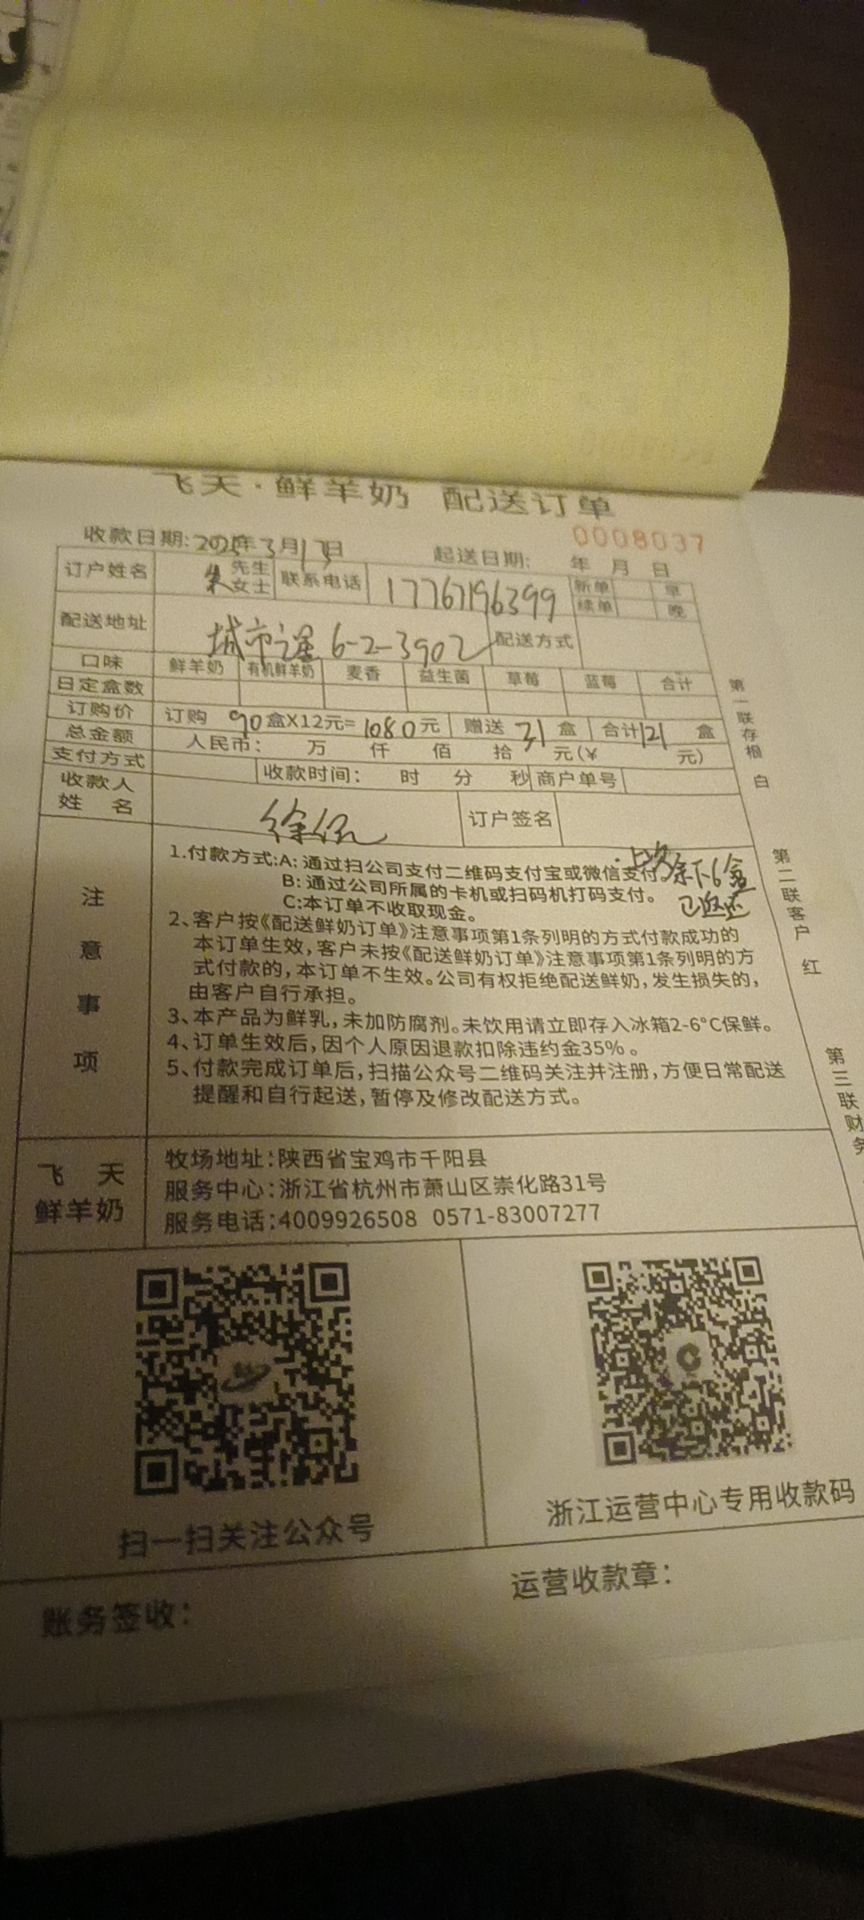 飞天·鲜羊奶 配送订单
0008037
收款日期: 2025年3月13日 起送日期: 年 月 日
订户姓名 朱 先生 女士 联系电话 17767196399 新单 续单 早 晚
配送地址 城市之星 6-2-3902 配送方式
口味 鲜羊奶 有机鲜羊奶 麦香 益生菌 草莓 蓝莓 合计
日定盒数
订购价 订购 90 盒X12元= 1080 元 赠送 31 盒 合计 121 盒
总金额 人民币: 万 仟 佰 拾 元(¥ 元)
支付方式 收款时间: 时 分 秒 商户单号
收款人姓名 徐 订户签名
余下6盒
已返还
注意事项
1.付款方式:A: 通过扫公司支付二维码支付宝或微信支付。
B: 通过公司所属的卡机或扫码机打码支付。
C:本订单不收取现金。
2、客户按《配送鲜奶订单》注意事项第1条列明的方式付款成功的
本订单生效,客户未按《配送鲜奶订单》注意事项第1条列明的方
式付款的,本订单不生效。公司有权拒绝配送鲜奶,发生损失的,
由客户自行承担。
3、本产品为鲜乳,未加防腐剂。未饮用请立即存入冰箱2-6°C保鲜。
4、订单生效后,因个人原因退款扣除违约金35%。
5、付款完成订单后,扫描公众号二维码关注并注册,方便日常配送
提醒和自行起送,暂停及修改配送方式。
第一联存根 白
第二联客户 红
第三联财务
飞天
鲜羊奶
牧场地址:陕西省宝鸡市千阳县
服务中心:浙江省杭州市萧山区崇化路31号
服务电话:4009926508 0571-83007277
扫一扫关注公众号
浙江运营中心专用收款码
账务签收:
运营收款章: